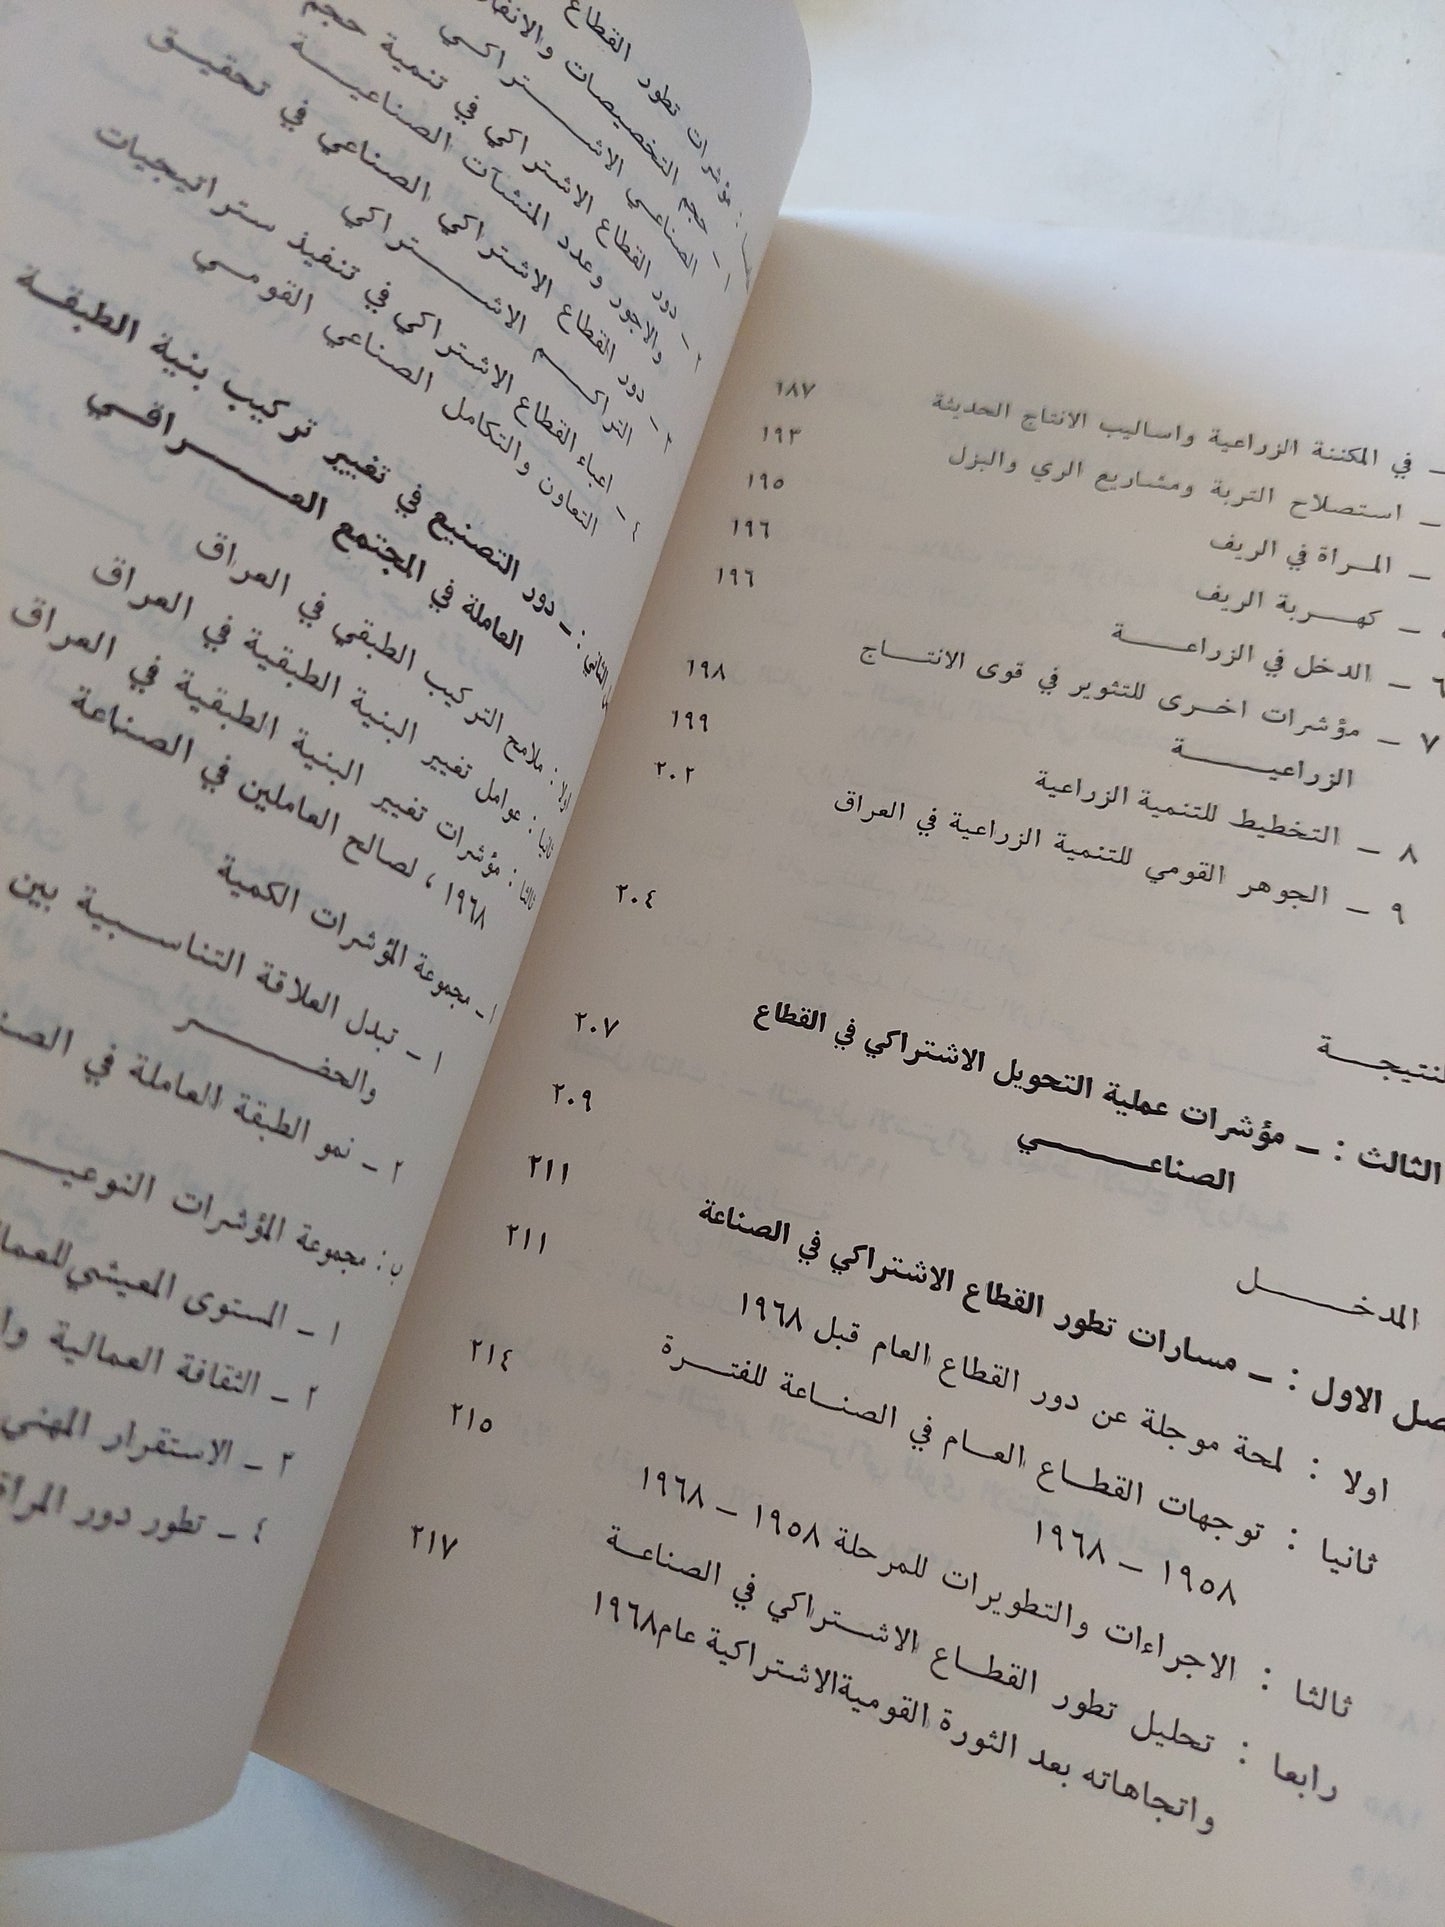 ـ في المكننة الزراعية واساليب الانتاج الحديثة ١٨٧
ـ استصلاح التربة ومشاريع الري والبزل ١٩٣
ـ المـرأة في الريف ١٩٥
ـ كهـربة الريف ١٩٦
٦ ـ الدخل في الزراعـــة ١٩٦
٧ ـ مؤشرات اخـرى للتثوير في قوى الانتـــاج
الزراعيــــة ١٩٨
٨ ـ التخطيط للتنمية الزراعية ١٩٩
٩ ـ الجوهر القومي للتنمية الزراعية في العراق ٢٠٢
النتيجـــة ٢٠٤
الثالث : ـ مؤشرات عملية التحويل الاشتراكي في القطاع
الصناعــــي ٢٠٧
المدخــــل ٢٠٩
الاول : ـ مسارات تطور القطاع الاشتراكي في الصناعة ٢١١
اولا : لمحة موجلة عن دور القطاع العام قبل ١٩٦٨ ٢١١
ثانيا : توجهات القطـاع العـام في الصناعة للفتــرة
١٩٥٨ ـ ١٩٦٨ ٢١٤
ثالثا : الاجراءات والتطويرات للمرحلة ١٩٥٨ ـ ١٩٦٨ ٢١٥
رابعا : تحليل تطور القطـاع الاشـتراكي في الصناعـة
واتجاهاته بعد الثورة القوميةالاشتراكية عام١٩٦٨ ٢١٧
القطاع
: مؤشرات تطور
١ ـ حجم التخصيصات
الصناعـي الاشــتراكـي
٢ ـ دور القطاع الاشتراكي في تنمية حجم
والاجور وعدد المنشآت الصناعيــة
٣ ـ دور القطاع الاشتراكي الصناعي في تحقيـق
التراكــم الاشـــتراكي
٤ ـ اعباء القطاع الاشتراكي في تنفيذ ستراتيجيات
التعاون والتكامل الصناعي القومـي
الثاني : ـ دور التصنيع في تغيير تركيب بنية الطبقـة
العاملة في المجتمع العـــراقـي
اولا : ملامح التركيب الطبقي في العراق
ثانيا : عوامل تغيير البنية الطبقية في العراق
ثالثا : مؤشرات تغيير البنية الطبقية في العراق
١٩٦٨ ، لصالح العاملين في الصناعة
ا ـ مجموعة المؤشرات الكمية
١ ـ تبدل العلاقة التناسـبية بين
والحضـــر
٢ ـ نمو الطبقة العاملة في
ب : مجموعة المؤشرات النوعيــ
١ ـ المستوى المعيشي
٢ ـ الثقافة العمالية
٣ ـ الاستقرار المهني
٤ ـ تطور دور المرأة